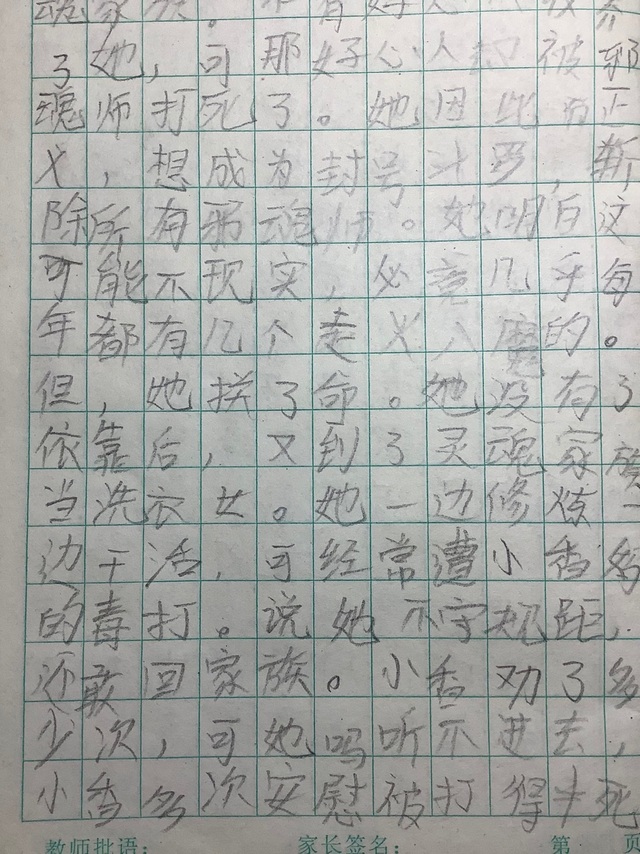 了她，可那好心人却被邪
魂师打死了。她因此为正
义，想成为封号斗罗，斩
除所有邪魂师。她明白这
可能不现实，必竟几乎每
年都有几个走火入魔的。
但，她拼了命。她没有了
依靠后，又到了灵魂家族
当洗衣女。她一边修炼一
边干活，可经常遭小香妈
的毒打。说她不守规距，
还敢回家族。小香劝了多
少次，可她妈听不进去，
小香多次安慰被打得半死
教师批语： 家长签名： 第 页